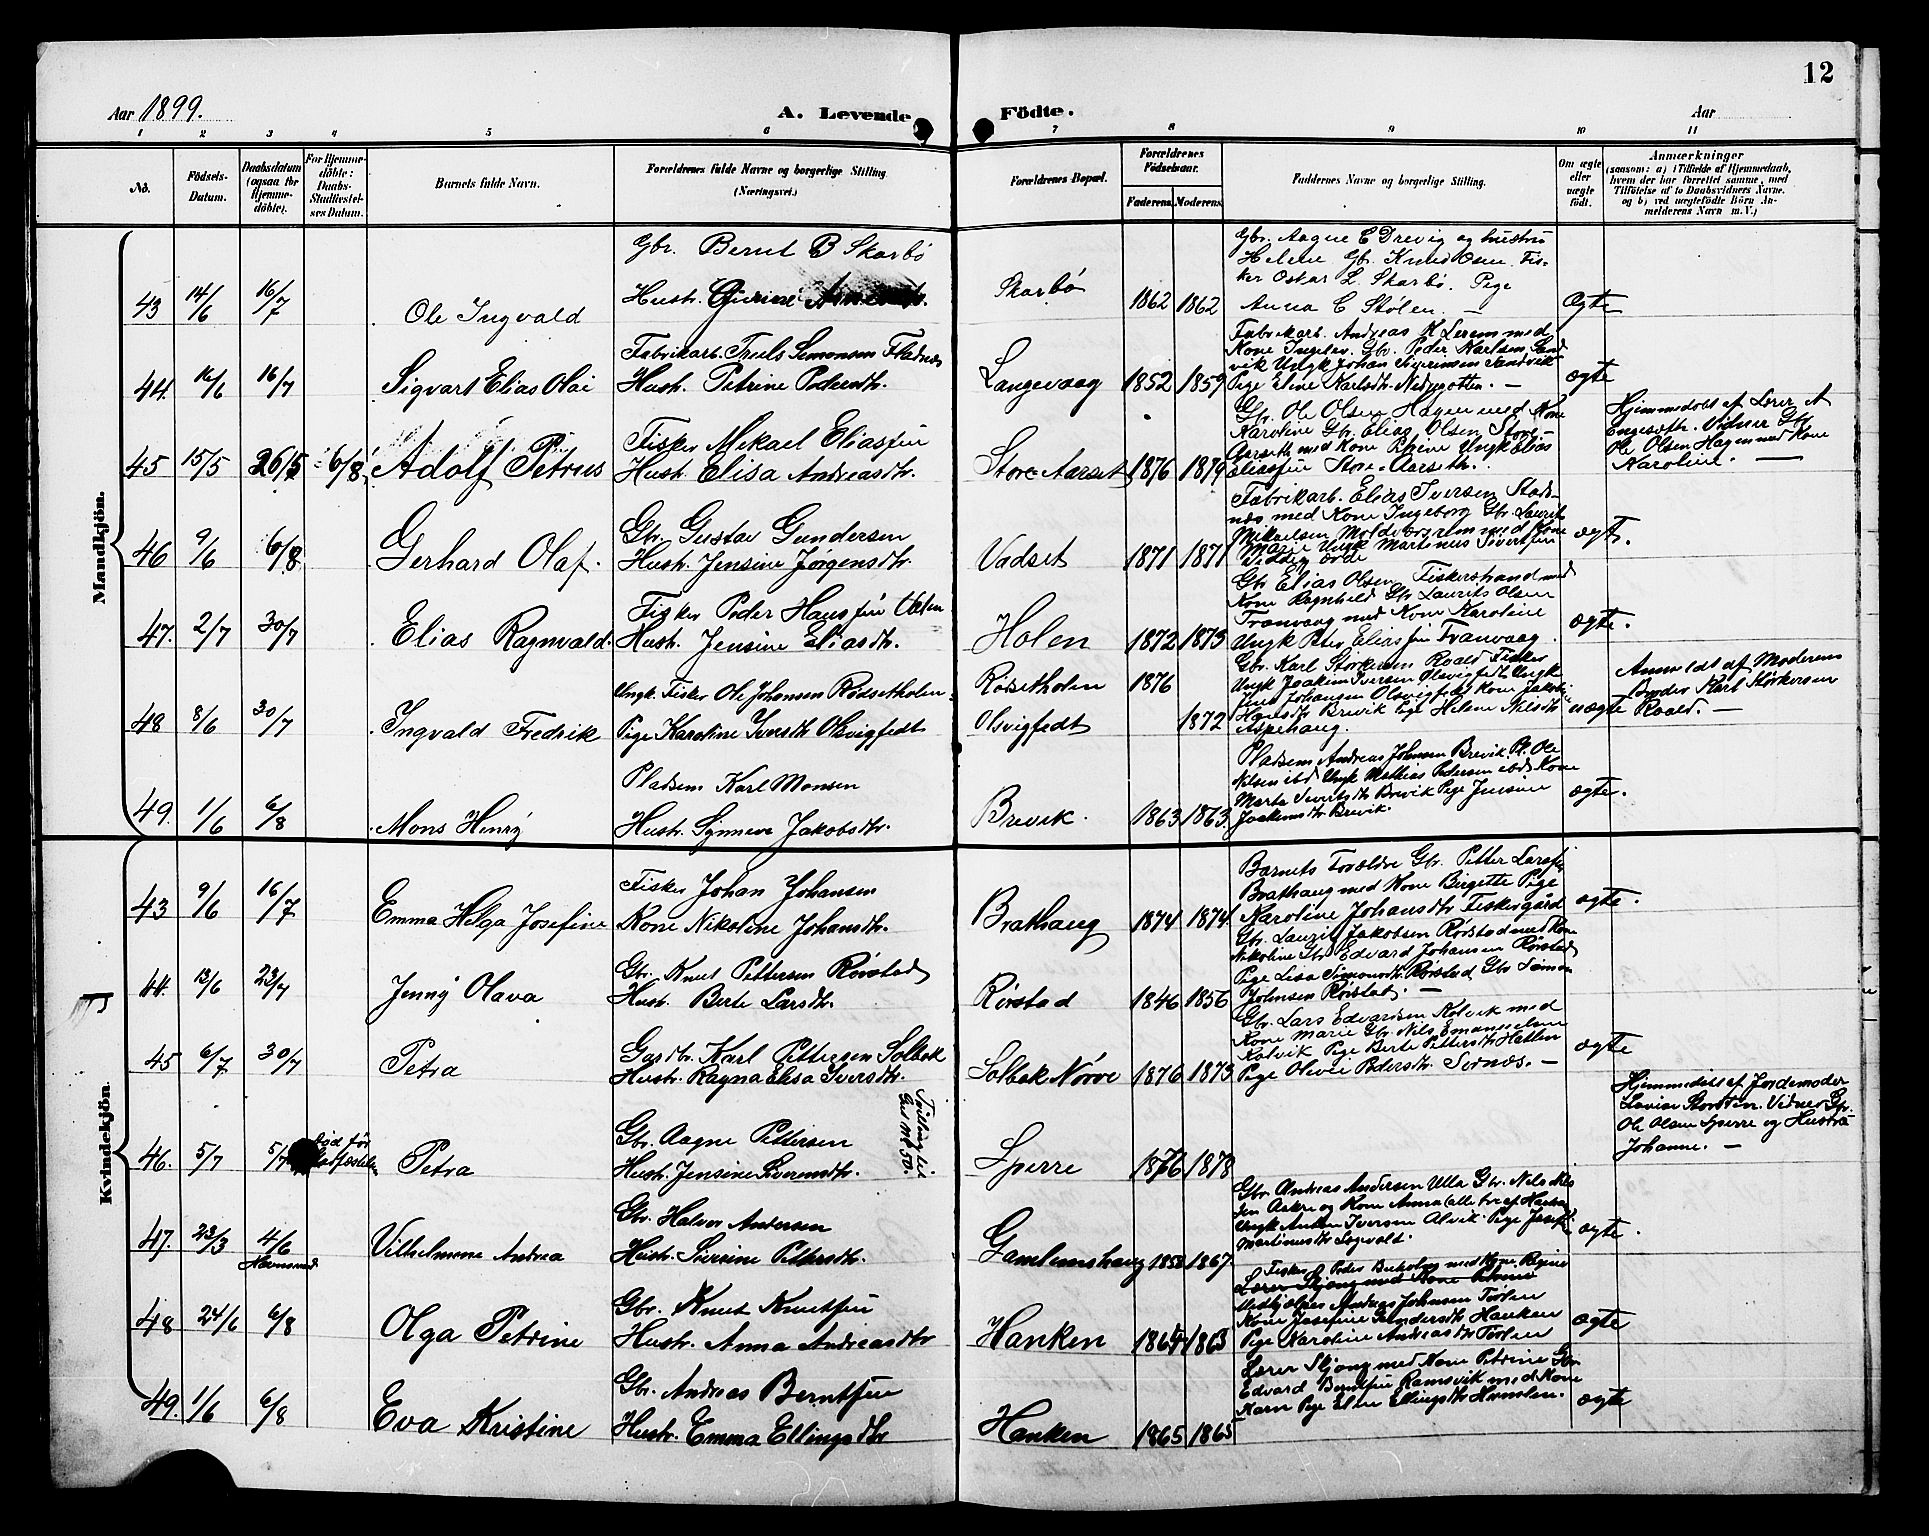 12
Aar 1899.
A. Levende Födte.
Aar
1 2 3 4 5 6 7 8 9 10 11
No.
Födsels-Datum.
Daabsdatum (ogsaa for Hjemme-döbte).
For Hjemme-döbte: Daabs-Stadfæstel-ses Datum.
Barnets fulde Navn.
Forældrenes fulde Navne og borgerlige Stilling (Næringsvei.)
Forældrenes Bopæl.
Forældrenes Födselsaar.
Faderens Moderens
Faddernes Navne og borgerlige Stilling.
Om ægte eller uægte födt.
Anmærkninger
(saasom: a) i Tilfælde af Hjemmedaab,
hvem der har forrettet samme, med
Tilföielse af to Daabsvidners Navne.
og b) ved uægtefödte Börn An-
melderens Navn m. V.)
Mandkjön.
43 14/6 16/7 Ole Ingvald
Gbr. Bernt B Skarbø
Hustr. Gurine
Skarbø 1862 1862
Gbr. Aagne E Drevig og hustru
Helene Gbr. Knud Osen. Fis-
ker Oskar L. Skarbø. Pige
Anna C Stølen. —
Ægte
44. 16/6 16/7 Sigvart Elias Olai
Fabrikarb. Truls Simonsen Fladnæs
Hust. Petrine Pedersdtr.
Langevaag 1852 1859
Fabrikarb. Andreas K Lerem med
Kone Ingelev. Gbr. Peder Karlsen Sand
vik Ungk Johan Siverinsen Sandvik
Pige Eline Karlsdtr. Nedregotten. —
ægte
45 15/5 26/5 6/8 Adolf Petrus
Fisker Mikael Eliassen
Hust. Elisa Andreasdtr.
Store Aarset 1876 1879
Gbr. Ole Olsen Hagen med Kone
Karoline Gbr. Elias Olsen Store-
Aarseth med Kone Petrine Ungk Elias
Eliassen Store-Aarseth.
Hjemmedøbt af Lærer A
Engeseth. Vidner Gbr
Ole Olsen Hagen med Kone
Karoline. —
46 9/6 6/8 Gerhard Olaf.
Gbr. Gustav Gundersen
Hust. Jensine Jørgensdtr.
Vadset 1871 1871
Fabrikarb. Elias Iversen Stads-
næs med Kone Ingeborg Gbr. Laurit
Mikaelsen Moldeversrem med Kone
Marie Ungk Martinus Sivertsen
ægt.
47. 2/7 30/7 Elias Ragnvald.
Fisker Peder Hanssen Holen
Hust. Jensine Eliasdtr.
Holen 1872 1873
Gbr Elias Olsen Fiskerstrand med
Kone Ragnhild Gbr Laurits Olsen
Tranvaag med Kone Karoline
Ungk Peter Eliassen Tranvaag
ægte.
48 8/6 30/7 Ingvald Fredrik
Ungk. Fisker Ole Johansen Rødsetholen
Pige Karoline Iversdtr Olsvigfedt
Rødsetholen 1876
Olsvigfedt 1872
Gbr. Karl Størkersen Roald Fisker
Ungk Joakim Iversen Olsvigfedt Ungk
Knut Johansen Olsvigfedt Kone Jakobi
Hansdtr Brevik Pige Helene Nilsdtr
Aspehaug.
uægte
Anmeldt af Moderens
Broder Karl Størkersen
Roald. —
49. 1/6 6/8 Mons Henry
Pladsem Karl Monsen
Hust. Synneve Jakobsdtr.
Brevik. 1863 1863
Pladsem Andreas Johnsen Brevik. Pl. Ole
Nilsen ibd Ungk Mathias Pedersen ibd Kone
Marta Sivertsdtr Brevik Pige Jensine
Joakimsdtr Brevik.
ægte.
Kvindekjön.
43 9/6 16/7 Emma Helga Josefine
Fisker Johan Johansen
Kone Nikoline Johansdtr.
Brathaug 1874 1874
Barnets Forældre Gbr. Petter Larssen
Brathaug med Kone Birgette Pige
Karoline Johansdtr Fiskergård
ægte.
44. 13/6 23/7 Jenny Olava
Gbr. Knut Pettersen Rørstad
Hust. Berte Larsdtr.
Rørstad 1846 1856
Gbr. Laurits Jakobsen Rørstad med Kone
Nikoline Gbr Edvard Johansen Rørstad
Pige Lisa Simonsdtr Rørstad Gbr Simon
Johnsen Rørstad. —
45 6/7 30/7 Petra
Gardbr. Karl Pettersen Solbak
Hust. Ragna Elisa Iversdtr.
Solbak Nørve 1876 1873
Gbr. Lars Edvardsen Kolvik med
Kone Marie Gbr. Nils Emanuelsen
Kolvik Pige Berte Pettersdtr Hatlen
Pige Olive Pedersdtr Sørnæs. —
ægte
46. 5/7 5/7 død før Stadfæstelse Petra
Gbr. Aagne Pettersen
Hust. Jensine Sverensdtr.
Tvilling til Gut No 50.
Sperre 1876 1878
Hjemmedøbt af Jordemoder
Lovise Storsten. Vidner Gbr.
Ole Olsen Sperre og Hustru
Johanne. —
47. 23/3 4/6 Havnsund Vilhelmine Andrea
Gbr. Halvor Andersen
Hust. Siverine Pettersdtr.
Gamlemshaug 1858 1867
Gbr. Andreas Andersen Ulla Gbr. Nils Nils
sen Askre og Kone Anna (alle tre af Haram
Ungk Anton Iversen Alvik Pige Josefi
Martinusdtr Søgvald.
ægte.
48 24/6 6/8 Olga Petrine
Gbr. Knut Knutsen
Hustr. Anna Andreasdtr
Hanken 1864 1863
Fisker Peder Buholm med Kone Regine
Lærer Skjong med Kone Petrine
Andreas Johnsen Tørlen
Kone Josefine Gundersdtr Hanken
Pige Karoline Andreasdtr Tørlen
ægte
49. 1/6 6/8 Eva Kristine
Gbr. Andreas Berntsen
Hust. Emma Ellingsdtr
Hanken 1865 1865
Lærer Skjong med Kone Petrine Gbr
Edvard Berntsen Ramsvik med Kone
Karn Pige Eline Ellingsdtr Hamlen.
ægte